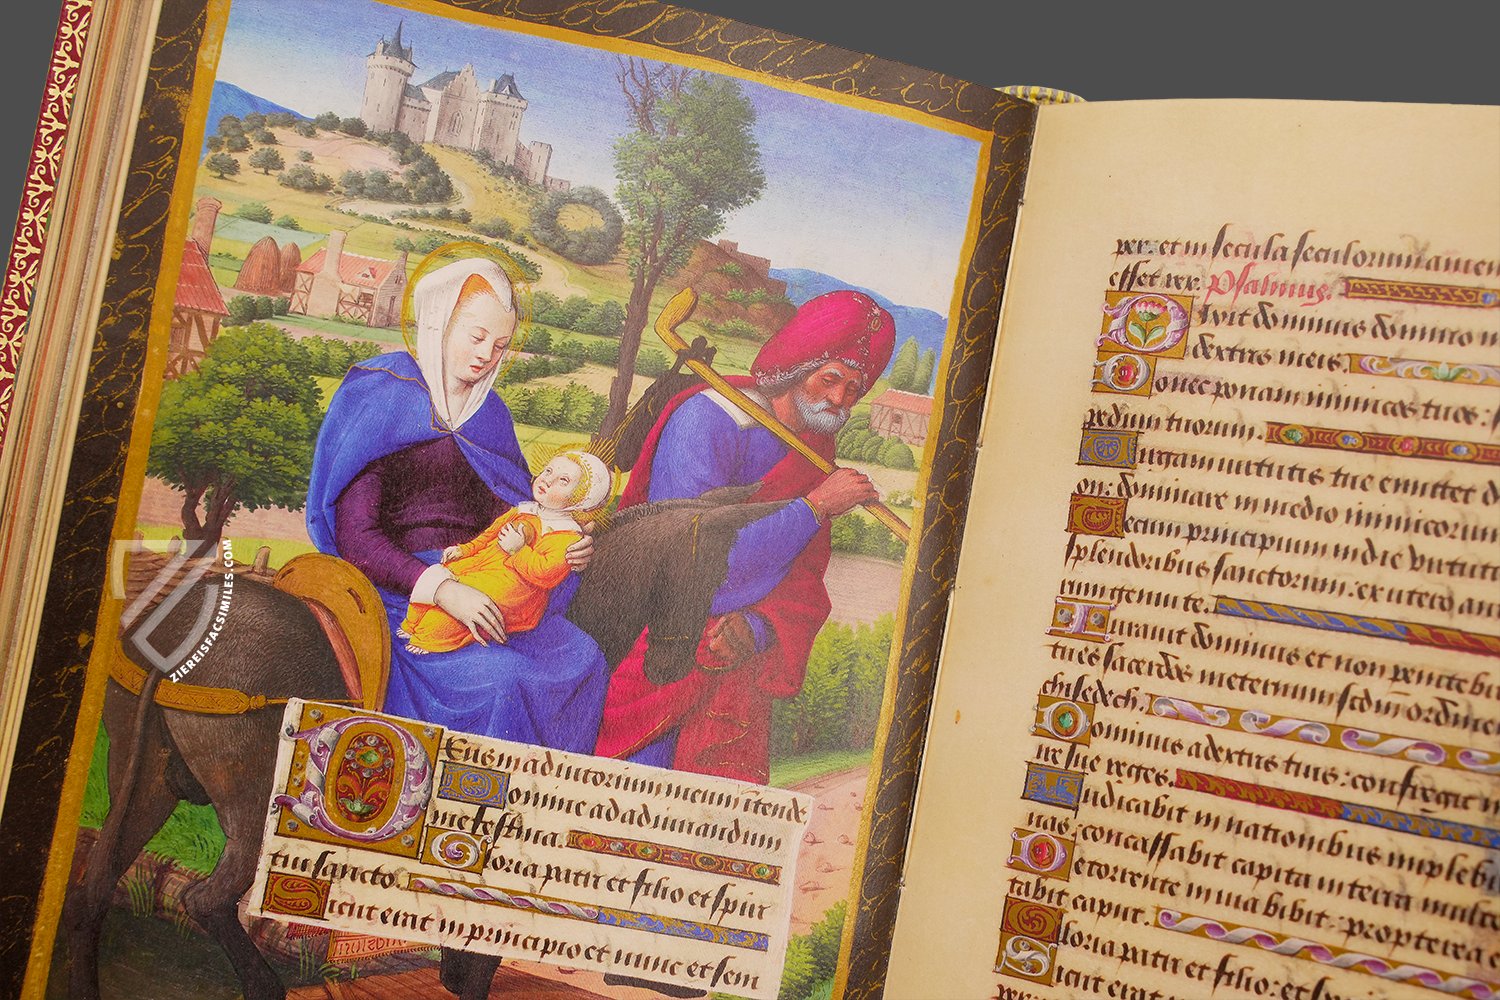 Eus in adiutorium meum itende
Domine ad adiuuandum
me festina.
Gloria patri et filio et spiri
tui sancto.
Sicut erat in principio et nunc et sem
per: et in secula seculorum amen
esset rex. Psalmus.
Ixit dominus domino m
dextris meis.
Donec ponam inimicos tuos:
pedum tuorum.
Uirgam uirtutis tue emittet d
on: dominare in medio inimicorum
Tecum principium in die uirtutis
splendoribus sanctorum: ex utero an
rum genui te.
Iurauit dominus et non penitebit
tu es sacerdos in eternum scdm ordinem
chisedech.
Dominus a dextris tuis: confregit in
ire sue reges.
Iudicabit in nationibus implebit
nas: concassabit capita in terra multo
De torrente in uia bibit: propterea e
tabit caput.
Gloria patri et filio: et spi
Sicut erat in principio et nunc
ZIEREISFACSIMILES.COM